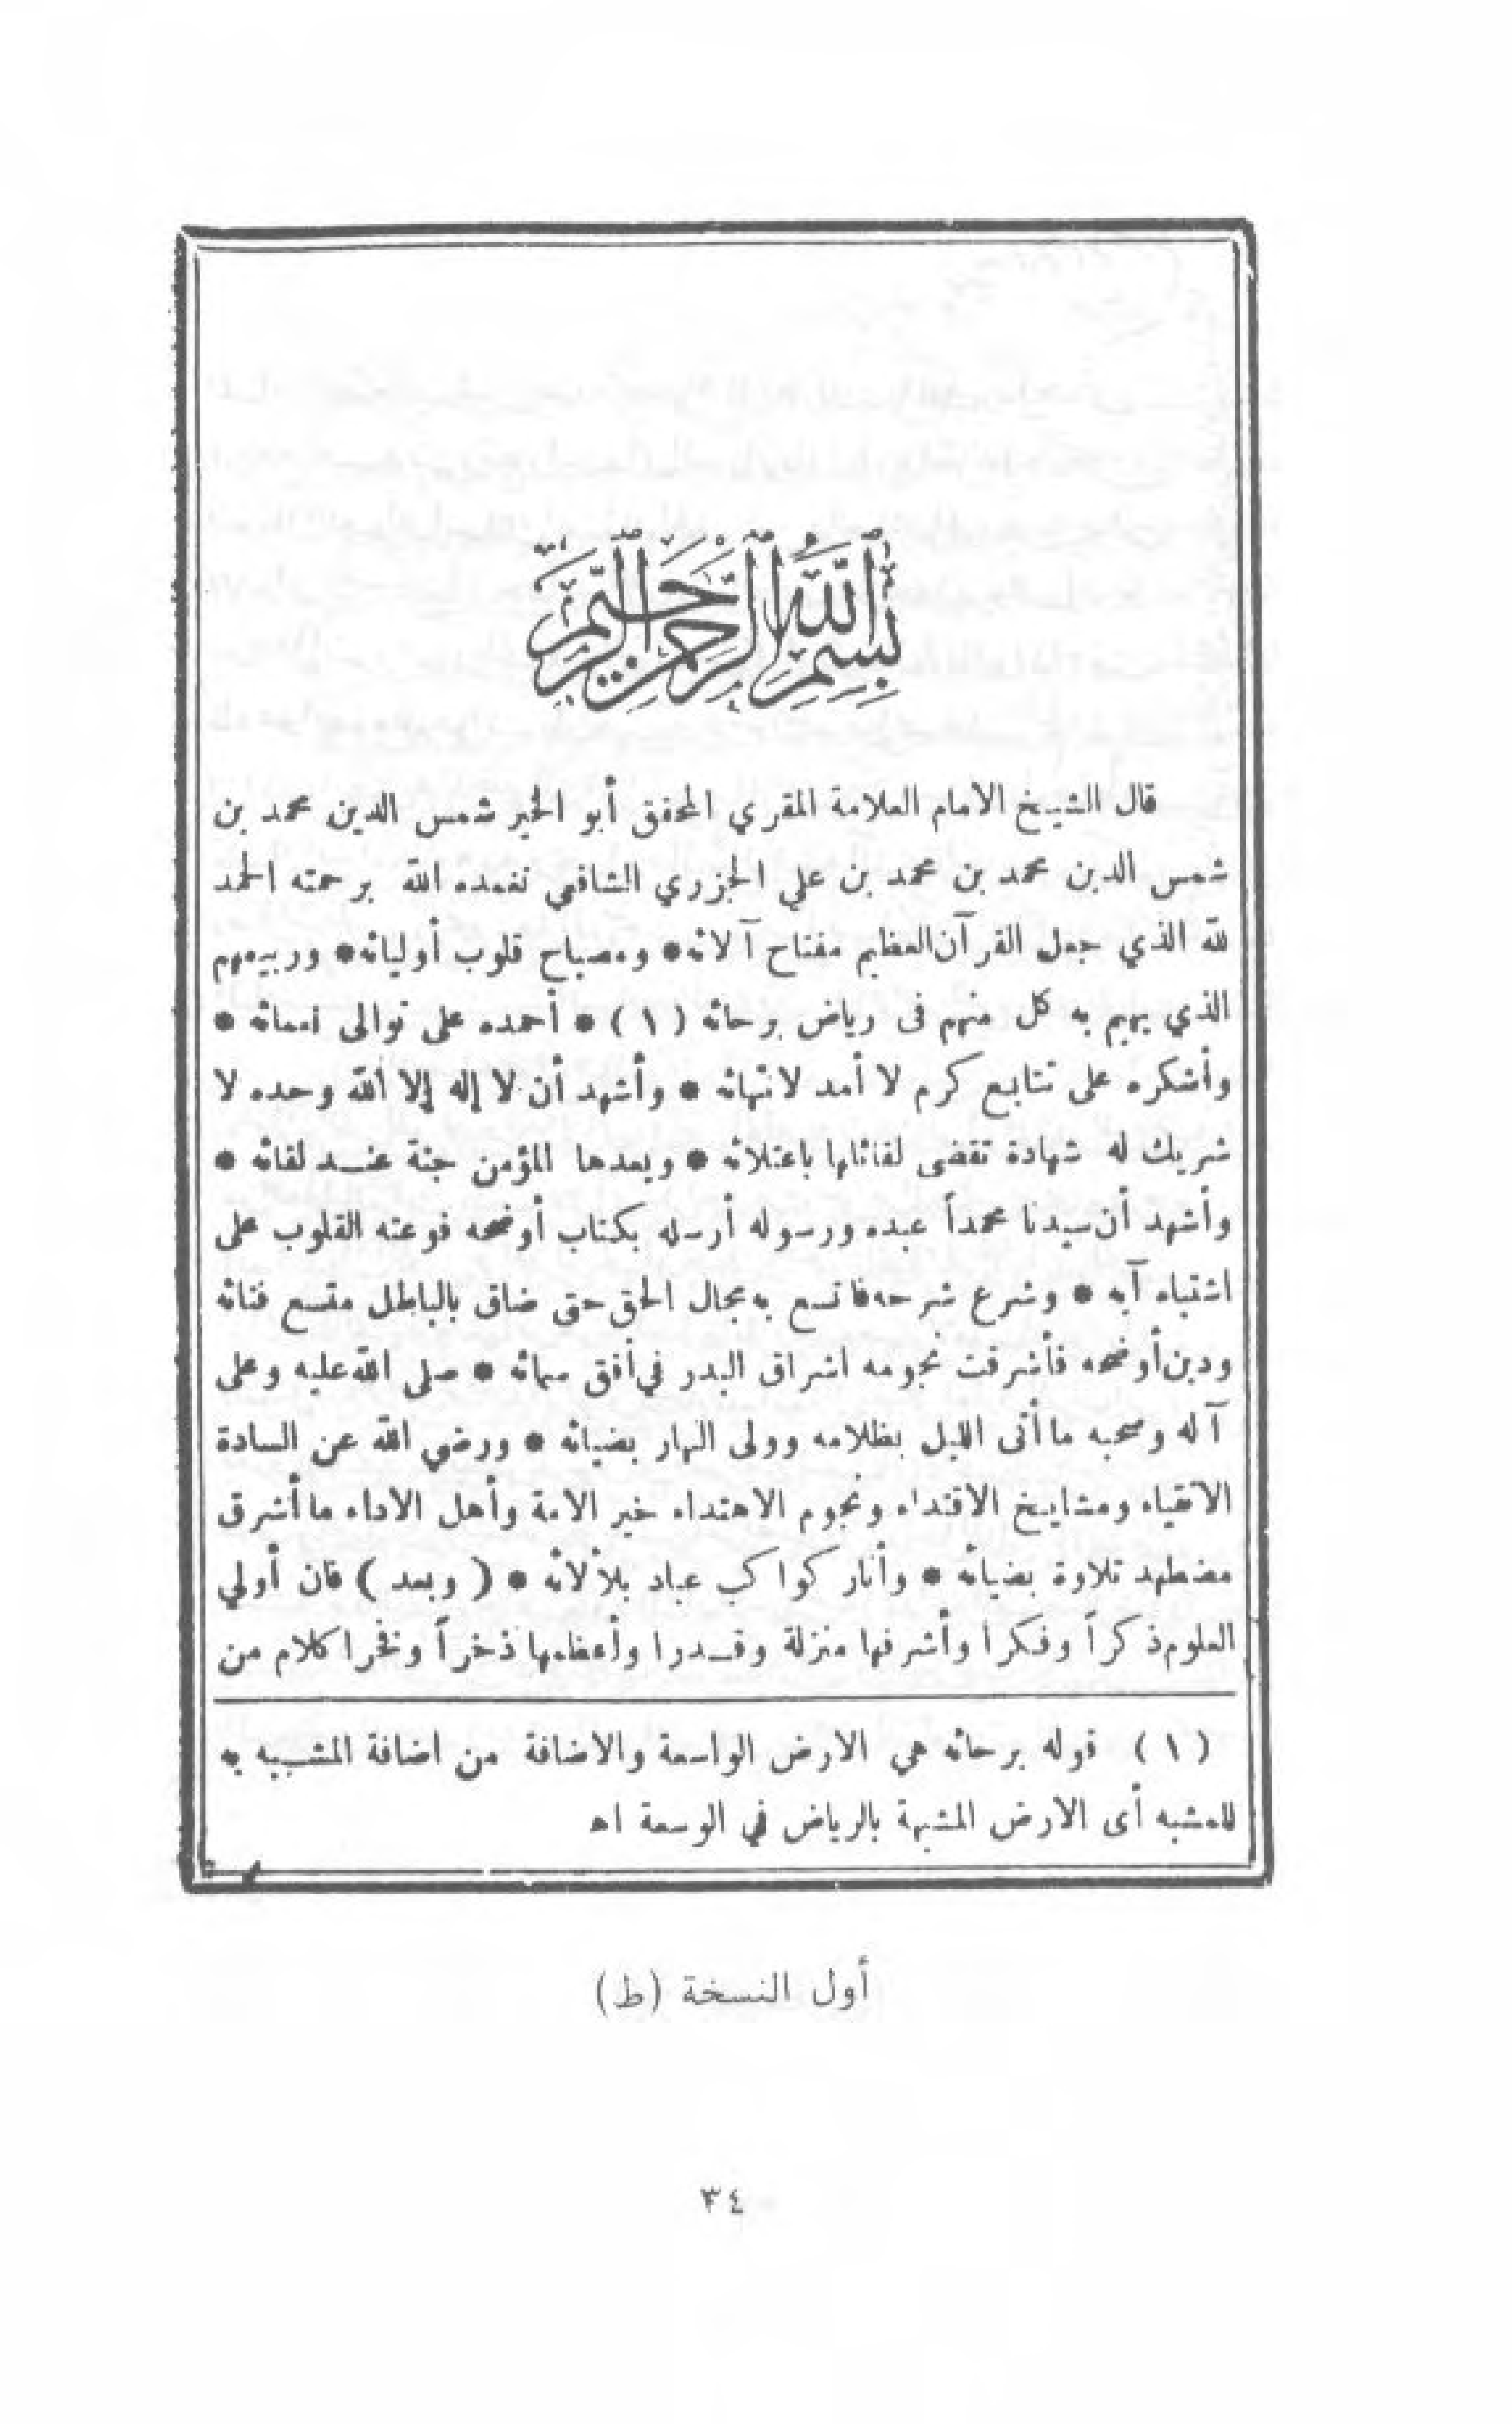 بسم الله الرحمن الرحيم
قال الشيخ الامام العلامة المقري المحقق أبو الخير شمس الدين محمد بن
شمس الدين محمد بن محمد بن علي الجزري الشافعي تغمده الله برحمته الحمد
لله الذي جعل القرآن العظيم مفتاح آلائه * ومصباح قلوب أوليائه * وربيعهم
الذي يهيم به كل منهم فى رياض برحائه (١) * أحمده على توالى نعمائه *
وأشكره على تتابع كرم لا أمد لانتهائه * وأشهد أن لا إله إلا الله وحده لا
شريك له شهادة تقضى لقائلها باعتلائه * ويعدها المؤمن جنة عنــد لقائه *
وأشهد أن سيدنا محمداً عبده ورسوله أرسله بكتاب أوضحه فوعته القلوب على
اشتباه آيه * وشرع شرحه فاتسع به مجال الحق حتى ضاق بالباطل متسع فنائه
ودين أوضحه فأشرقت نجومه اشراق البدر في أفق سمائه * صلى الله عليه وعلى
آله وصحبه ما أتى الليل بظلامه وولى النهار بضيائه * ورضي الله عن السادة
الاتقياء ومشايخ الاقتداء ونجوم الاهتداء خير الامة وأهل الاداء ما أشرق
مضطهد تلاوة بضيائه * وأنار كواكب عباد بلألائه * ( وبعد ) فان أولي
العلوم ذكراً وفكراً وأشرفها منزلة وقــدرا وأعظمها ذخراً وفخرا كلام من
(١) قوله برحائه هي الارض الواسعة والاضافة من اضافة المشــبه به
للمشبه أى الارض المشبهة بالرياض في الوسعة اه
أول النسخة (ط)
٣٤